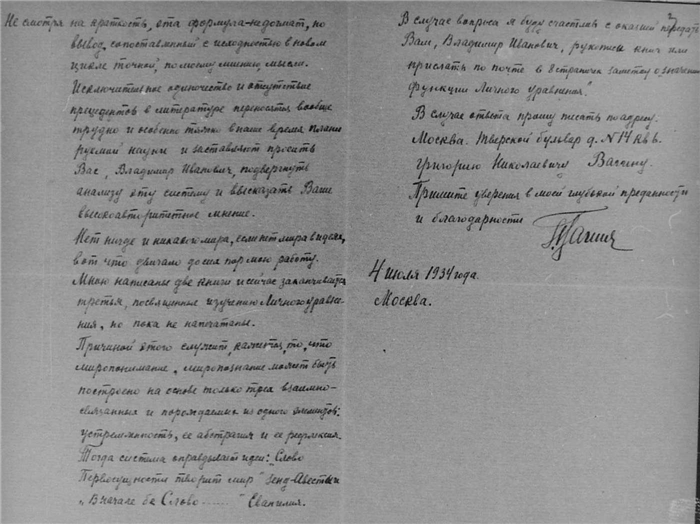 Не смотря на краткость, эта формула-недогмат, но
вывод, сопоставленный с исходностью в новом
цикле точной, по моему мнению, мысли.
Исключительное одиночество и отсутствие
прецедентов в литературе переносятся вообще
трудно и особенно тяжко в наше время плани
руемой науки и заставляют просить
Вас, Владимир Иванович, подвергнуть
анализу эту систему и высказать Ваше
высокоавторитетное мнение.
Нет нигде и никакого мира, если нет мира в идеях,
вот что двигало до сих пор мою работу.
Мною написаны две книги и сейчас заканчивается
третья, посвященная изучению Личного уравне-
ния, но пока не напечатаны.
Причиной этого служит, кажется, то, что
миропонимание, миропознание может быть
построено на основе только трех взаимно-
связанных и порождаемых из одного элементов:
устремленность, ее абстракция и ее рефлексия.
Тогда система оправдывает идеи: "Слово
Первосущности творит мир" Зенд-Авесты и
"Вначале бе Слово ......" Евангелия.
В случае вопроса я буду счастлив с оказией передать
Вам, Владимир Иванович, рукописи книг или
прислать по почте в 8 страничек заметку о значении
функции Личного уравнения."
В случае ответа прошу писать по адресу:
Москва. Тверской бульвар д. N 14 кв 6.
Григорию Николаевичу
Примите уверения в моей глубокой преданности
и благодарности
4 июля 1934 года.
Москва.